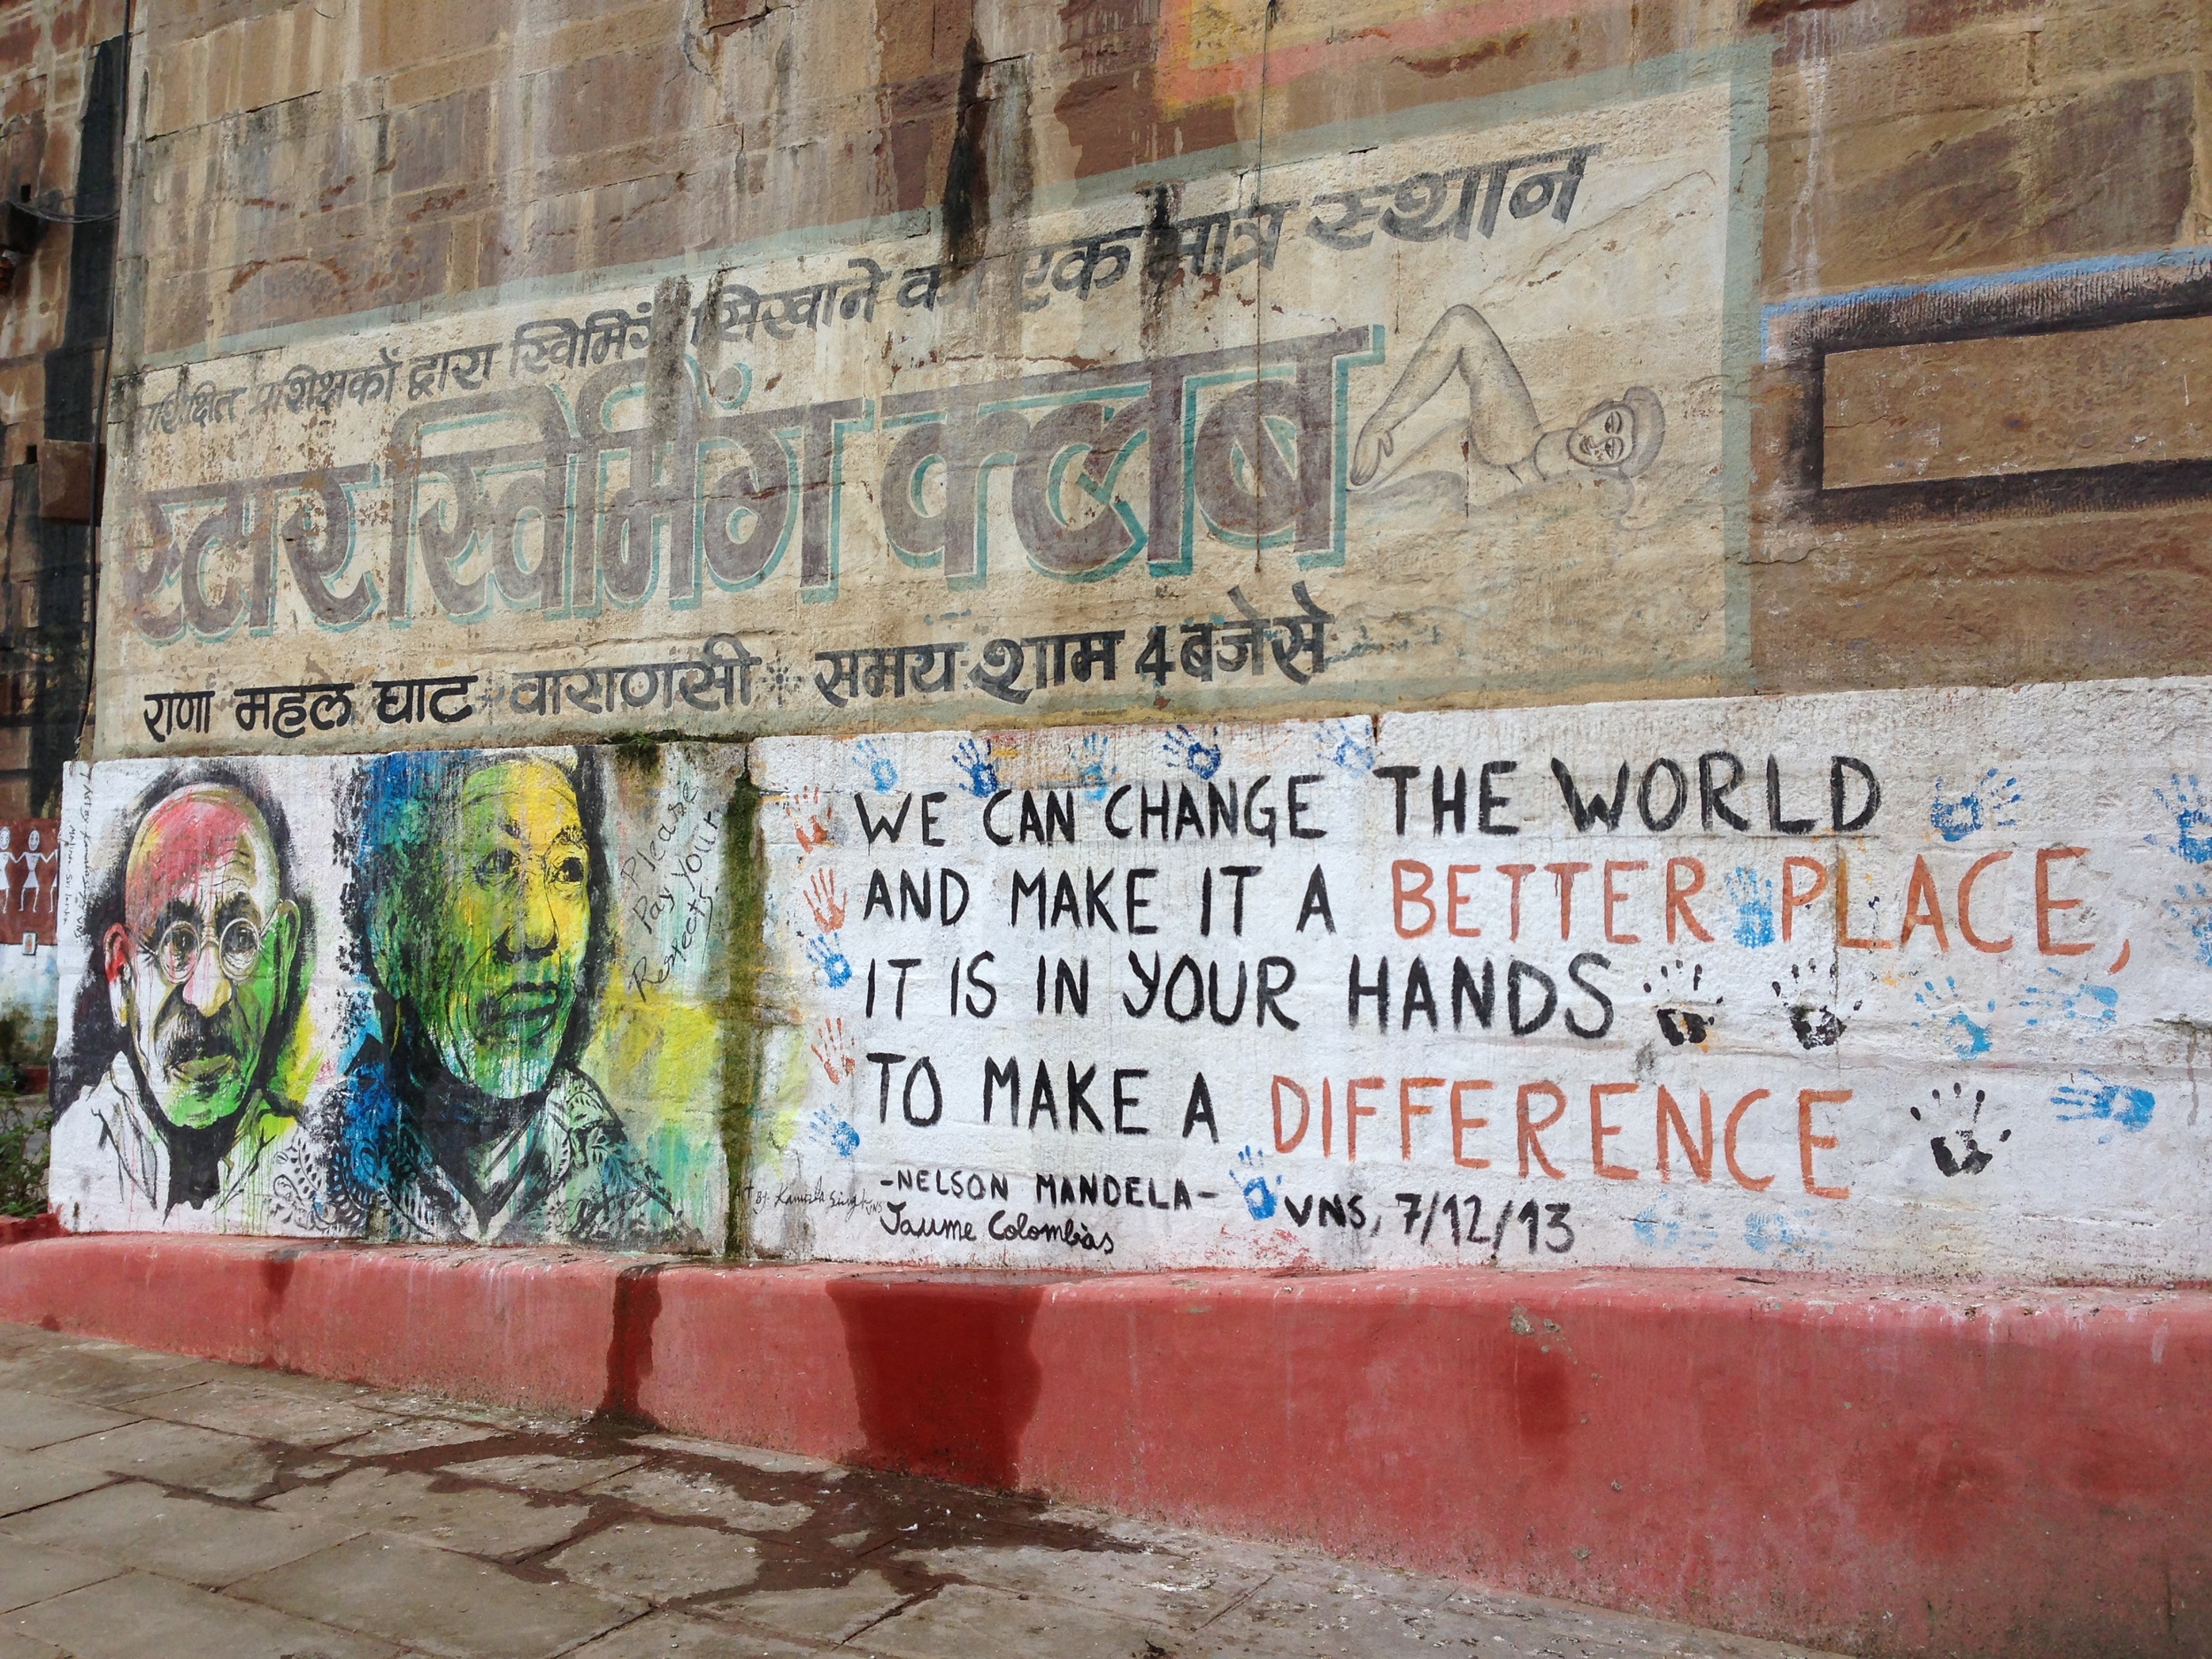 प्रशिक्षित प्रशिक्षकों द्वारा स्विमिंग सिखाने का एक मात्र स्थान
स्टार स्विमिंग क्लब
राणा महल घाट * वाराणसी * समय शाम 4 बजे से
Please
Pay Your
Respects
WE CAN CHANGE THE WORLD
AND MAKE IT A BETTER PLACE,
IT IS IN YOUR HANDS
TO MAKE A DIFFERENCE
-NELSON MANDELA-
Jaume Colombàs
VNS, 7/12/13
Art By: Kamala Singh VNS